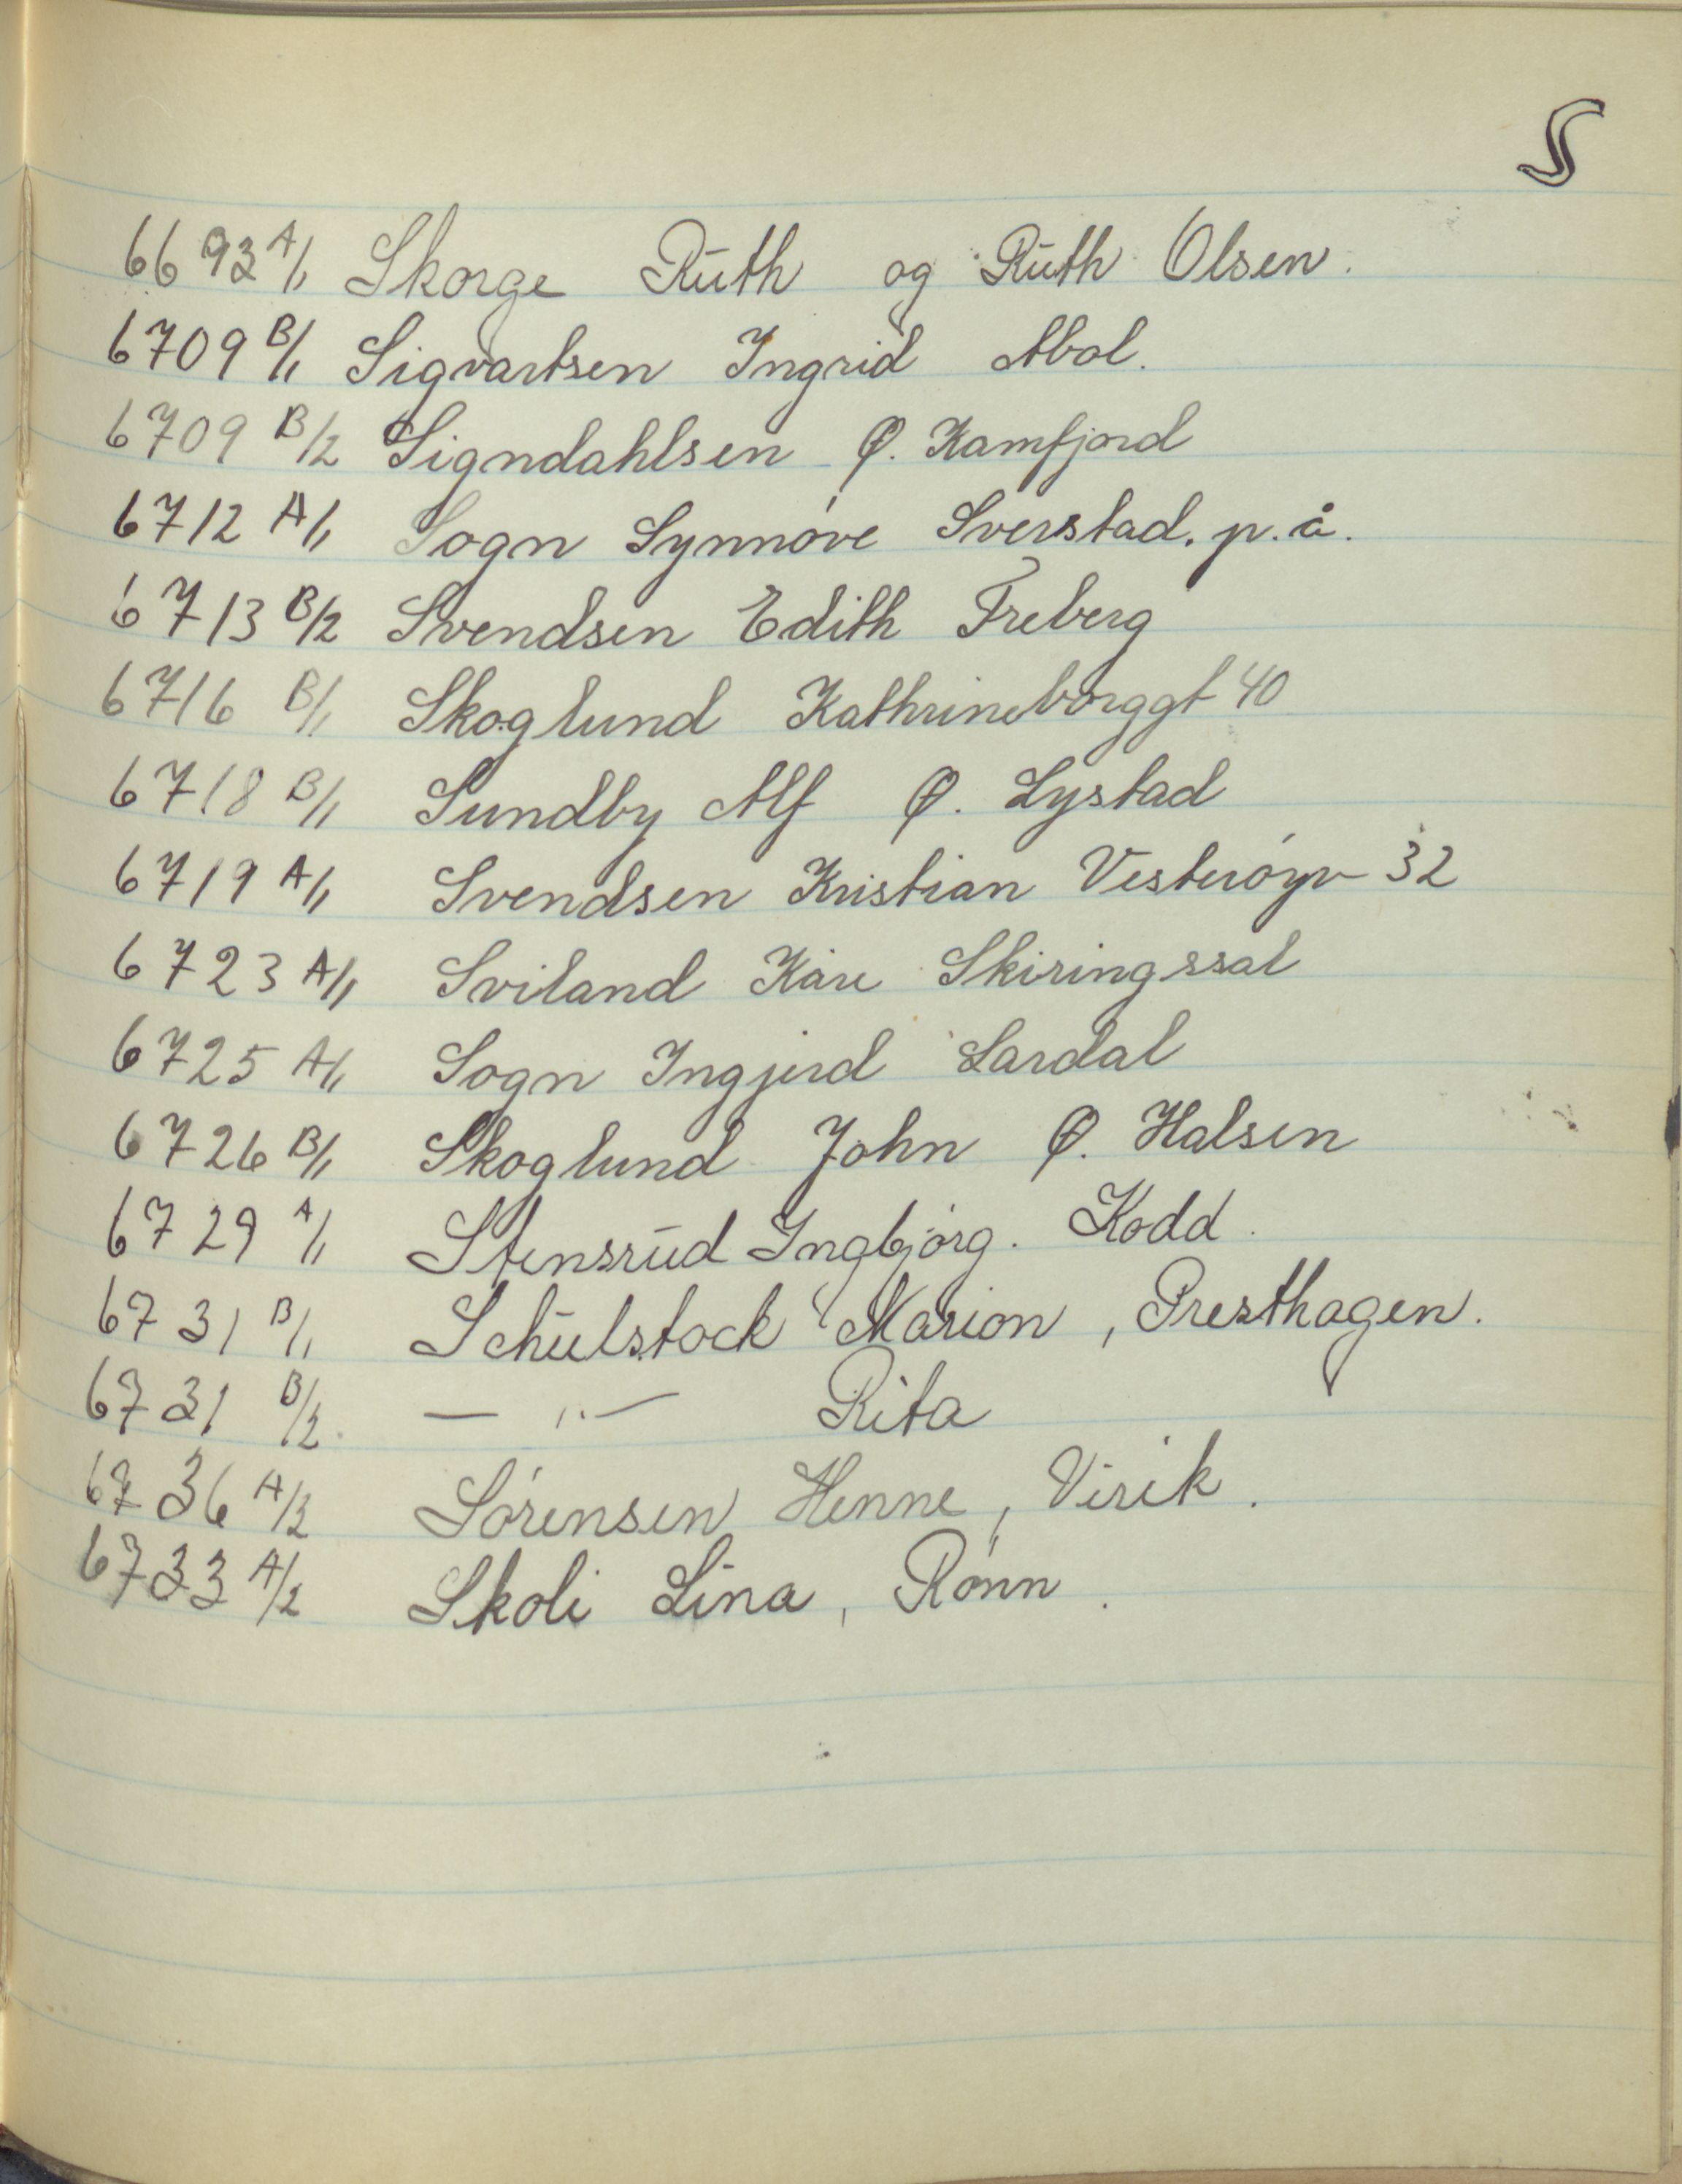 S
6693 A/1 Skorge Ruth og Ruth Olsen.
6709 B/1 Sigvartsen Ingrid Abol.
6709 B/2 Signdahlsen Ø. Kamfjord
6712 A/1 Sogn Synnóve Sverstad. p. å.
6713 B/2 Svendsen Edith Freberg
6716 B/1 Skoglund Kathrineborggt 40
6718 B/1 Sundby Alf Ø. Lystad
6719 A/1 Svendsen Kristian Vesteróyv 32
6723 A/1 Sviland Kåre Skiringssal
6725 A/1 Sogn Ingjerd Lardal
6726 B/1 Skoglund John Ø. Halsen
6729 A/1 Stensrud Ingbjórg. Kodd.
6731 B/1 Schulstock Marion, Presthagen.
6731 B/2. — „ — Rita
6736 A/2 Sórensen Henne, Virik.
6733 A/2 Skoli Lina, Rónn.